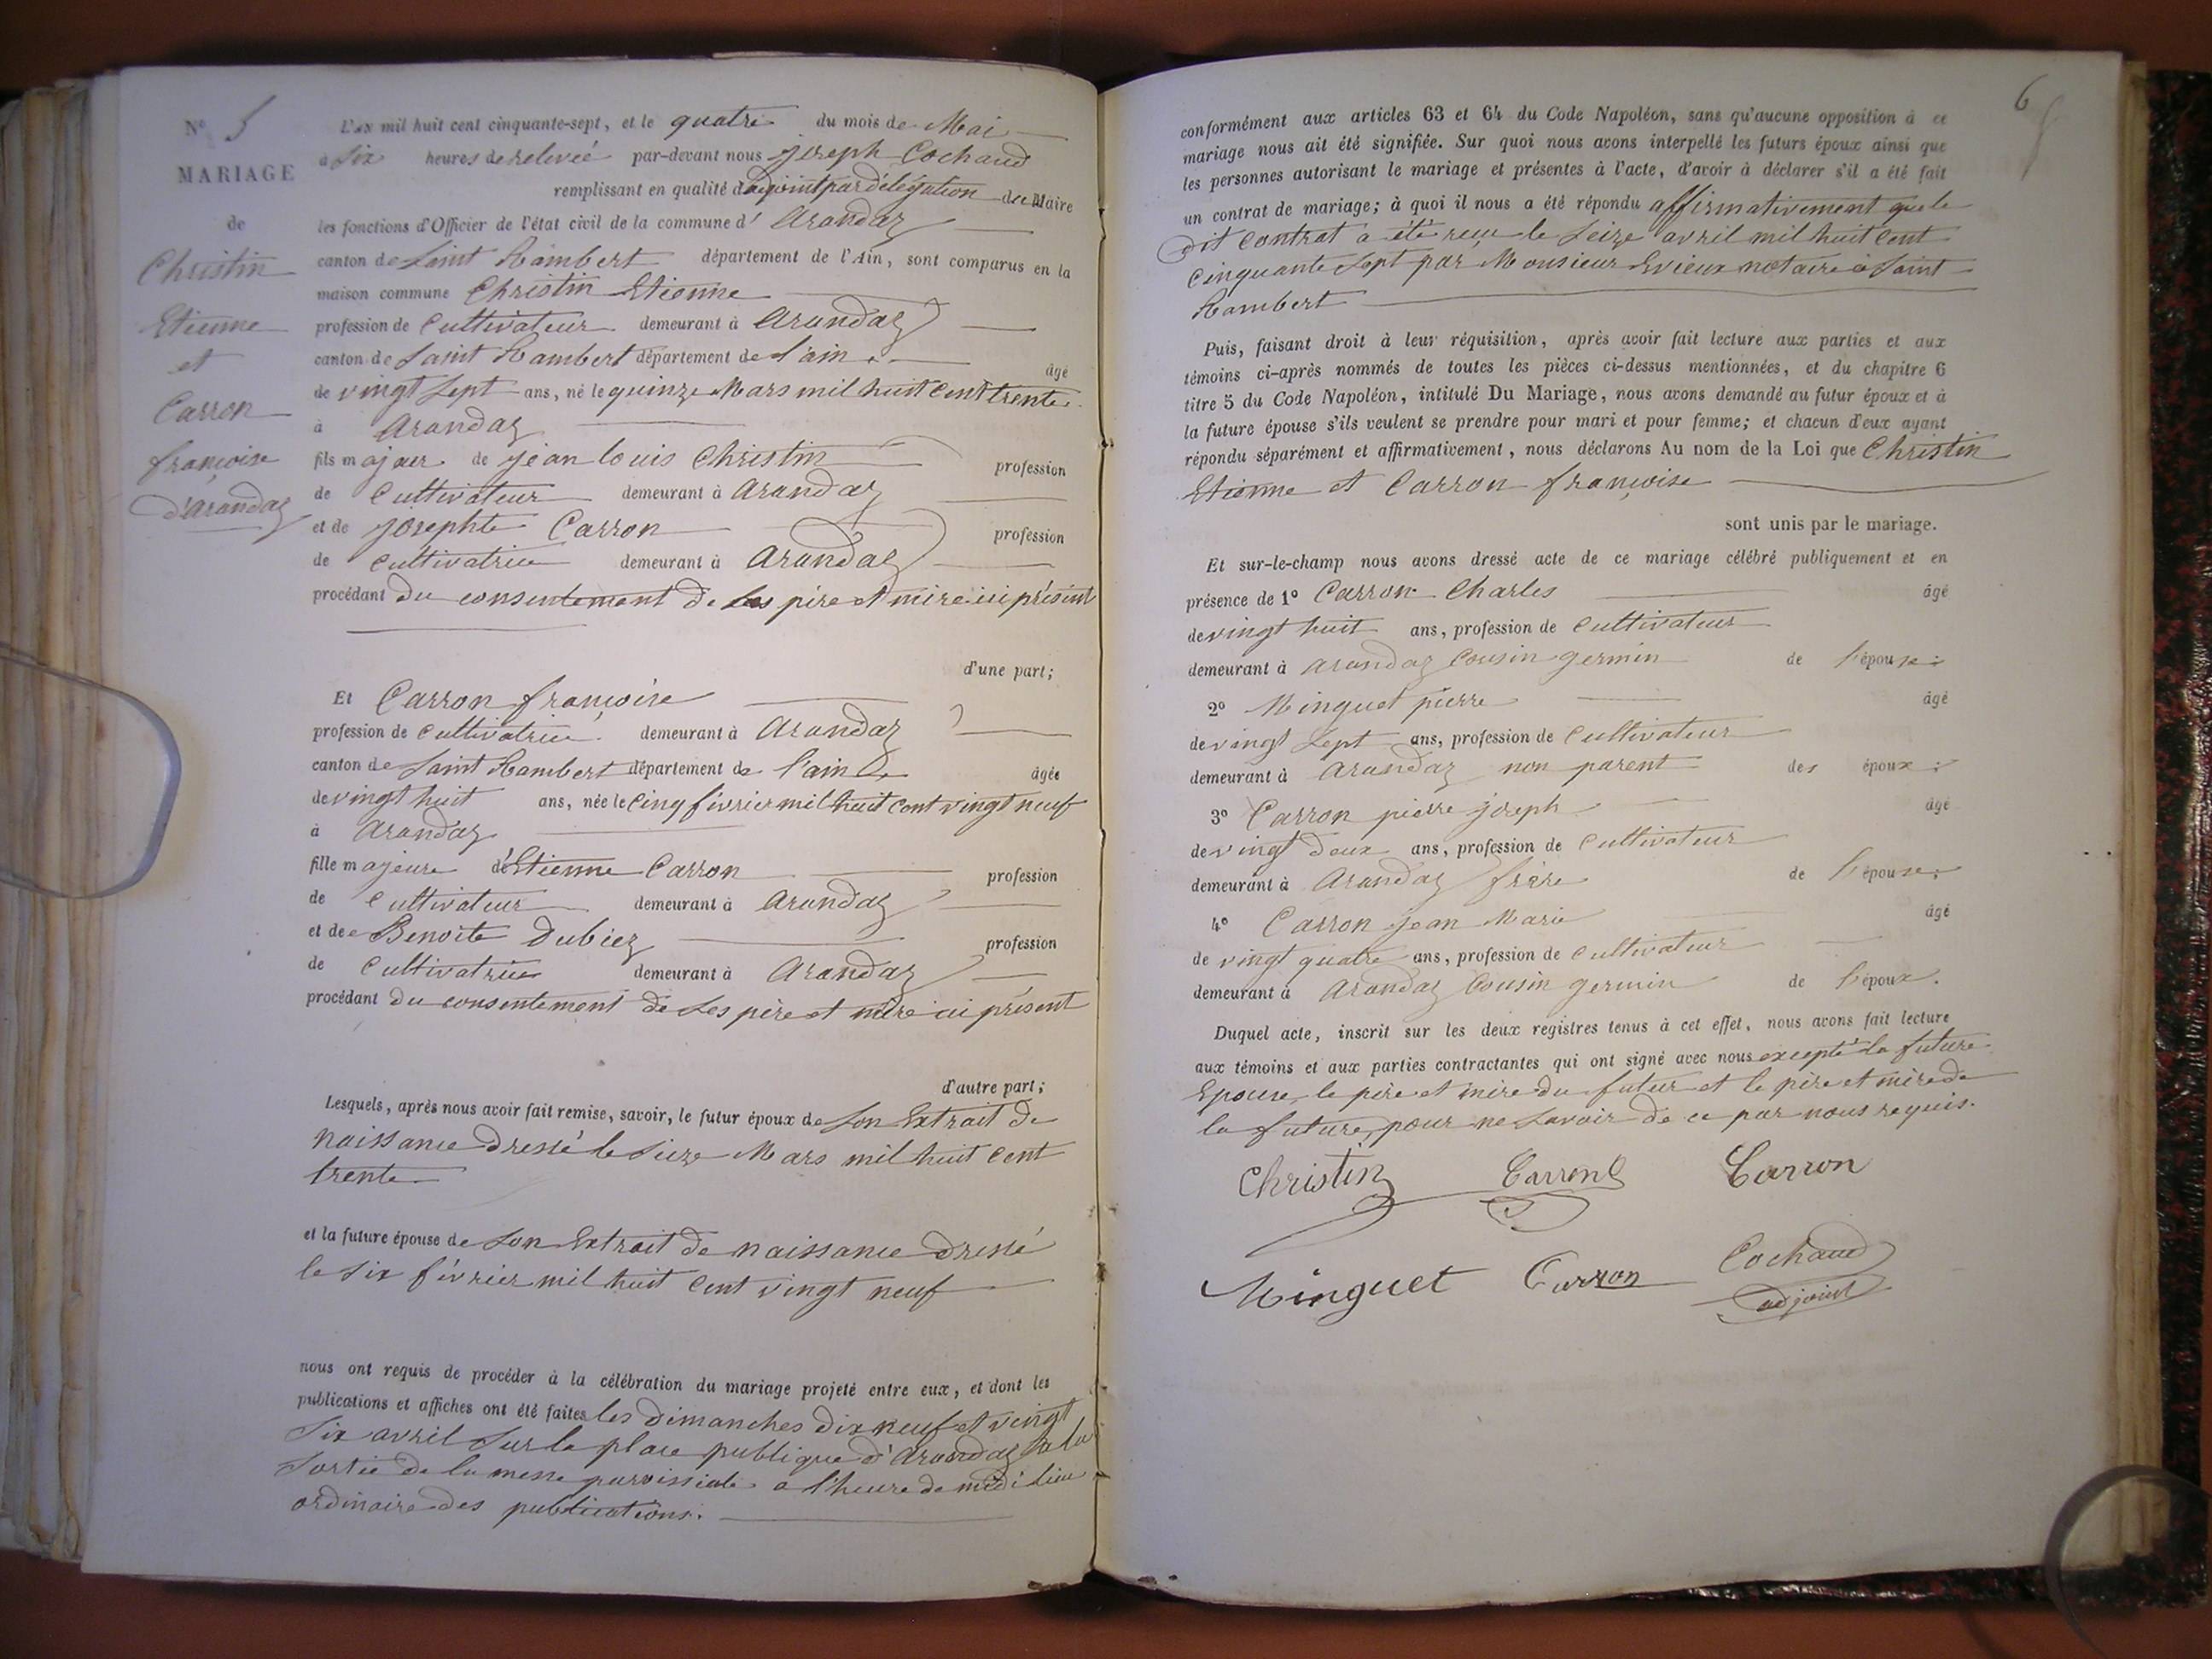 N° 5
MARIAGE
de
Christin
Etienne
et
Carron
françoise
d'arandaz
L'an mil huit cent cinquante-sept, et le quatre du mois de Mai
à six heures de relevée par-devant nous joseph Cochaud
remplissant en qualité d'adjoint par délégation du Maire
les fonctions d'Officier de l'état civil de la commune d' Arandaz
canton de Saint Rambert département de l'Ain, sont comparus en la
maison commune Christin Etienne
profession de Cultivateur demeurant à Arandaz
canton de Saint Rambert département de l'ain âgé
de vingt sept ans, né le quinze Mars mil huit Cent trente
à Arandaz
fils majeur de jean louis Christin profession
de Cultivateur demeurant à Arandaz
et de josephte Carron profession
de Cultivatrice demeurant à Arandaz
procédant du consentement de ses père et mère ici présent
d'une part;
Et Carron françoise
profession de Cultivatrice demeurant à Arandaz
canton de Saint Rambert département de l'ain âgée
de vingt huit ans, née le cinq février mil huit Cent vingt neuf
à Arandaz
fille majeure d'Etienne Carron profession
de Cultivateur demeurant à Arandaz
et de Benoite Dubiez profession
de Cultivatrice demeurant à Arandaz
procédant du consentement de ses père et mère ici présent
d'autre part;
Lesquels, après nous avoir fait remise, savoir, le futur époux de son Extrait de
naissance dressé le seize Mars mil huit Cent
trente
et la future épouse de son Extrait de naissance dressé
le six février mil huit Cent vingt neuf
nous ont requis de procéder à la célébration du mariage projeté entre eux, et dont les
publications et affiches ont été faites les dimanches dix neuf et vingt
six avril sur la place publique d'Arandaz à la
sortie de la messe paroissiale a l'heure de midi lieu
ordinaire des publications.
6
conformément aux articles 63 et 64 du Code Napoléon, sans qu'aucune opposition à ce
mariage nous ait été signifiée. Sur quoi nous avons interpellé les futurs époux ainsi que
les personnes autorisant le mariage et présentes à l'acte, d'avoir à déclarer s'il a été fait
un contrat de mariage; à quoi il nous a été répondu affirmativement que le
dit Contrat a été reçu le seize avril mil huit Cent
Cinquante sept par Monsieur Evieux notaire à Saint
Rambert
Puis, faisant droit à leur réquisition, après avoir fait lecture aux parties et aux
témoins ci-après nommés de toutes les pièces ci-dessus mentionnées, et du chapitre 6
titre 5 du Code Napoléon, intitulé Du Mariage, nous avons demandé au futur époux et à
la future épouse s'ils veulent se prendre pour mari et pour femme; et chacun d'eux ayant
répondu séparément et affirmativement, nous déclarons Au nom de la Loi que Christin
Etienne et Carron françoise
sont unis par le mariage.
Et sur-le-champ nous avons dressé acte de ce mariage célébré publiquement et en
présence de 1° Carron Charles âgé
de vingt huit ans, profession de Cultivateur
demeurant à Arandaz Cousin germin de l'épouse;
2° Minguet pierre âgé
de vingt sept ans, profession de Cultivateur
demeurant à Arandaz non parent des époux;
3° Carron pierre joseph âgé
de vingt deux ans, profession de Cultivateur
demeurant à Arandaz frère de l'épouse;
4° Carron jean Marie âgé
de vingt quatre ans, profession de Cultivateur
demeurant à Arandaz Cousin germin de l'époux.
Duquel acte, inscrit sur les deux registres tenus à cet effet, nous avons fait lecture
aux témoins et aux parties contractantes qui ont signé avec nous excepté la future
Epouse, le père et mère du futur et le père et mère de
la future, pour ne savoir de ce par nous requis.
Christin Carron Carron
Minguet Carron Cochaud
adjoint